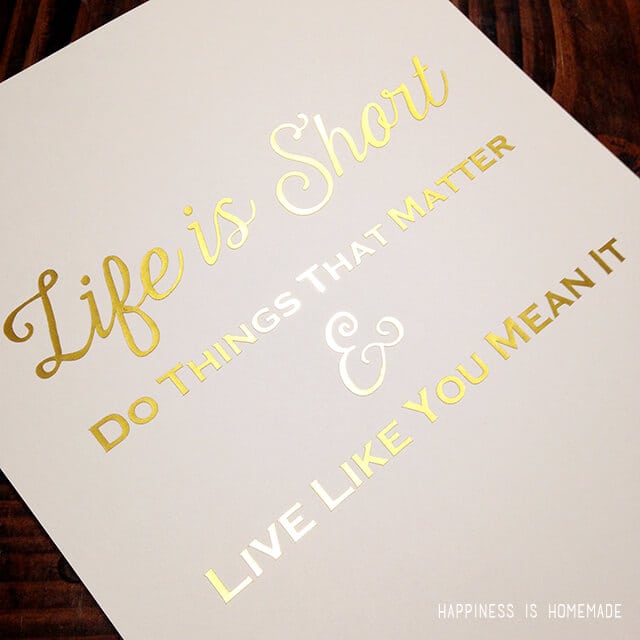 Life is Short
Do Things That Matter
&
Live Like You Mean It
HAPPINESS IS HOMEMADE